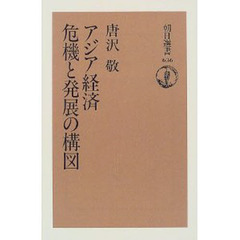 朝日選書
636
唐沢 敬
アジア経済
危機と発展の構図